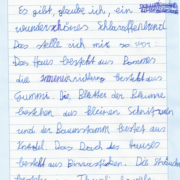 Es gibt, glaube ich, ein
wunderschönes Schlaraffenland.
Das stelle ich mir so vor:
Das Haus besteht aus Pommes
die besteht aus
Gummi. Die Blätter der Bäume
bestehen aus kleinen Schnitzeln
und der Baumstamm besteht aus
Das Dach des Hauses
besteht aus Die